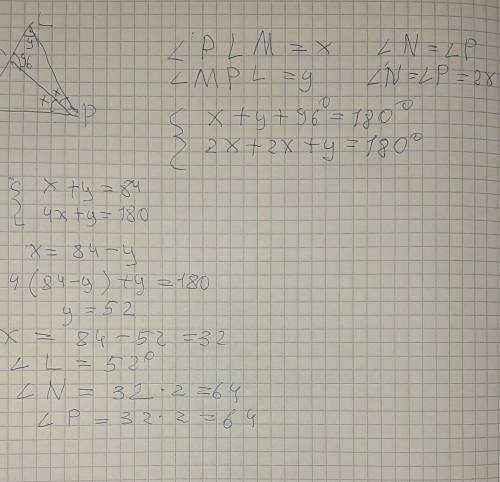 L
y
96
x x
P
∠ PLM = x ∠N = ∠P
∠ MPL = y ∠N = ∠P = 2x
{ x + y + 96° = 180°
2x + 2x + y = 180°
{ x + y = 84
4x + y = 180
x = 84 - y
4(84 - y) + y = 180
y = 52
x = 84 - 52 = 32
∠ L = 52°
∠ N = 32 · 2 = 64
∠ P = 32 · 2 = 64